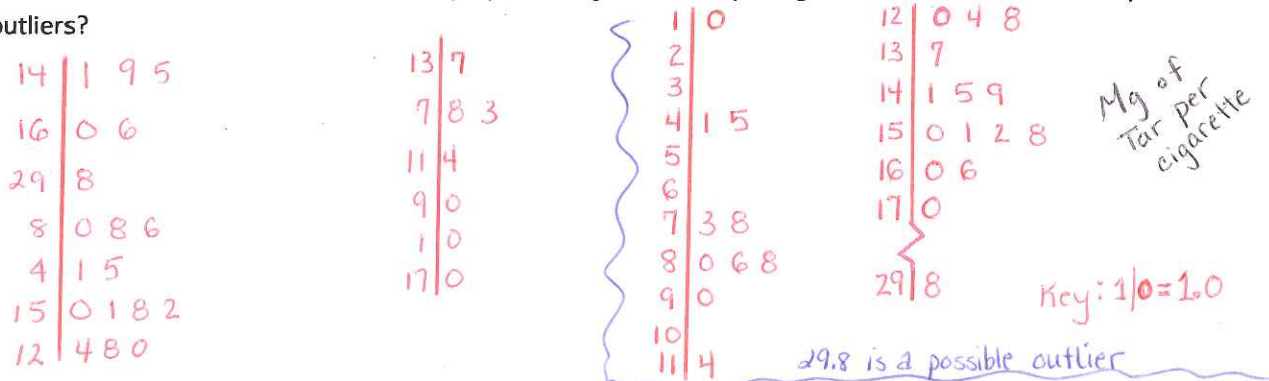 outliers?
14 | 1 9 5
16 | 0 6
29 | 8
8 | 0 8 6
4 | 1 5
15 | 0 1 8 2
12 | 4 8 0
13 | 7
7 | 8 3
11 | 4
9 | 0
1 | 0
17 | 0
1 | 0
2 |
3 |
4 | 1 5
5 |
6 |
7 | 3 8
8 | 0 6 8
9 | 0
10 |
11 | 4
12 | 0 4 8
13 | 7
14 | 1 5 9
15 | 0 1 2 8
16 | 0 6
17 | 0
29 | 8
Mg of
Tar per
cigarette
Key: 1|0=1.0
29.8 is a possible outlier